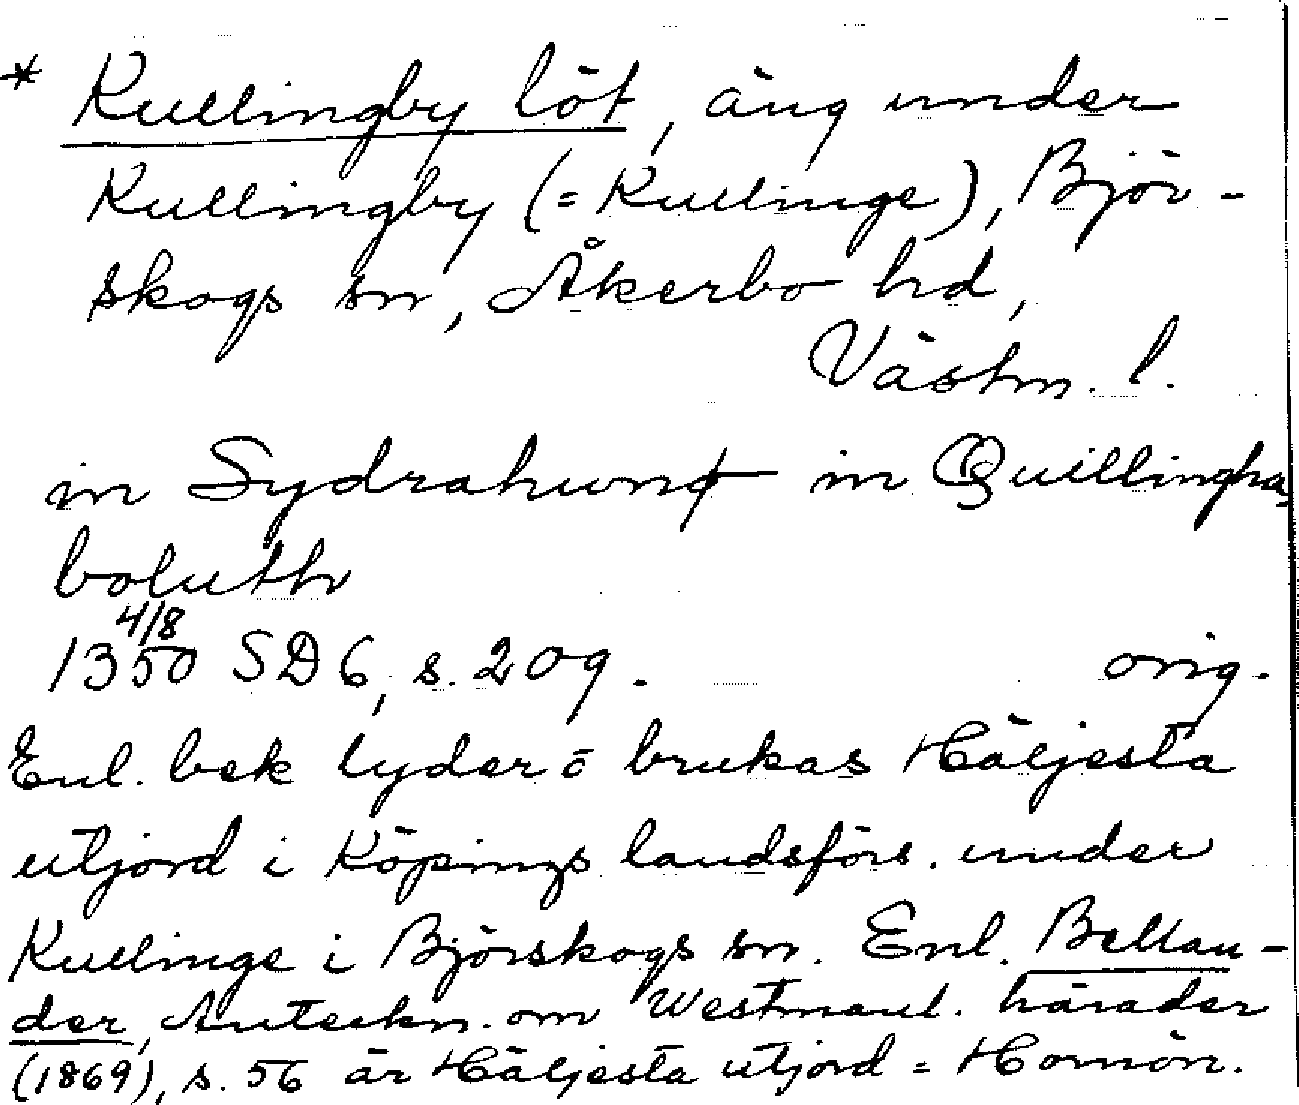 * Kullingby löt, äng under
Kullingby (= Kullinge), Björ-
skogs sn, Åkerbo hd,
Västm. l.
in Sydrahunđ in Quillingha
boluth
4/8
1350 SD 6, s. 209. orig.
Enl. bek lyder o brukas Häljesta
utjord i Köpings landsförs. under
Kullinge i Björskogs sn. Enl. Bellan-
der, Anteckn. om Westmanl. härader
(1869), s. 56 är Häljesta utjord = Hornön.